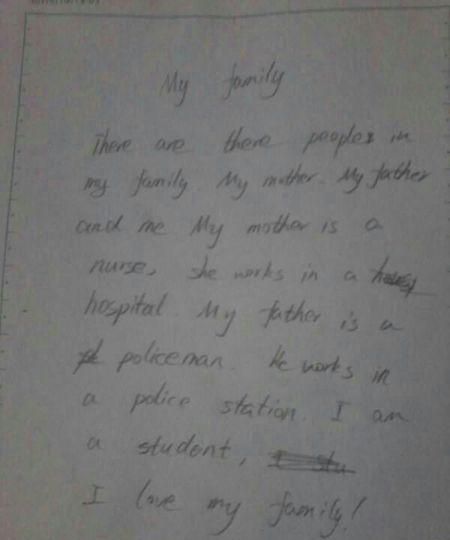 My family
There are there peoples in
my family. My mother. My father
and me My mother is a
nurse, she works in a
hospital. My father is a
policeman. He works in
a police station. I am
a student,
I love my family!